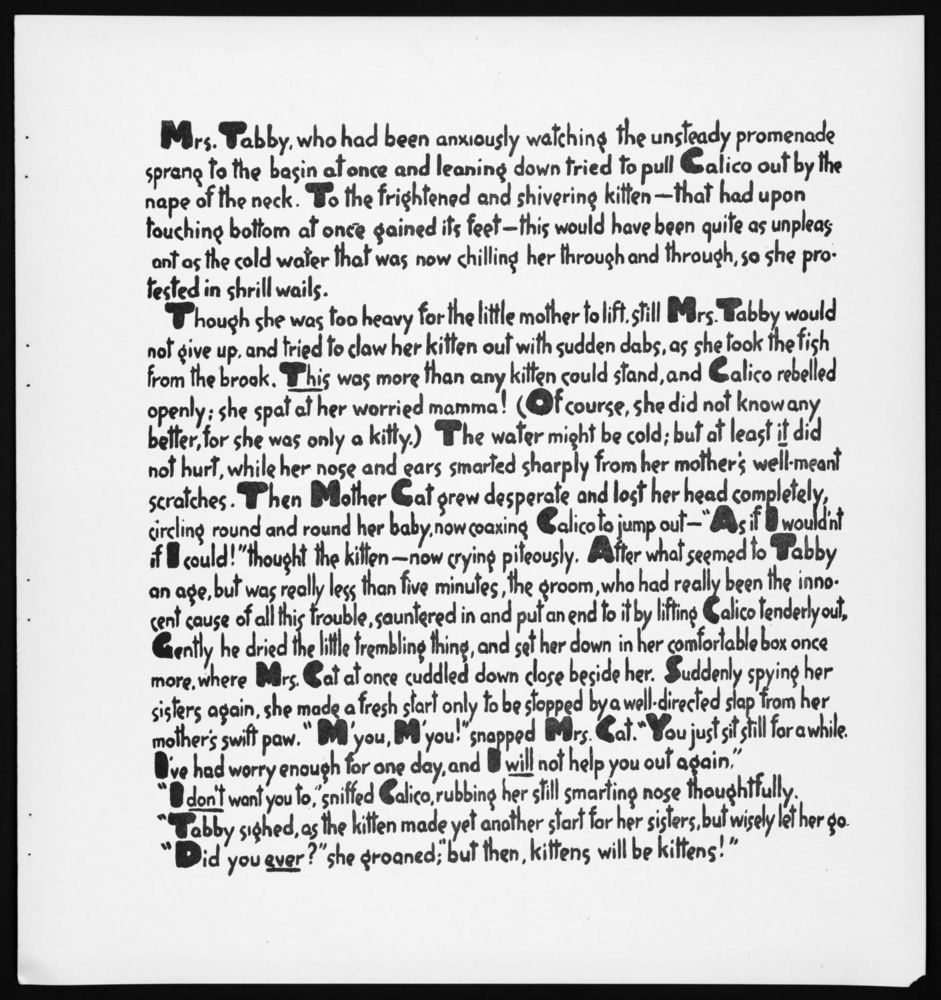 Mrs. Tabby, who had been anxiously watching the unsteady promenade
sprang to the basin at once and leaning down tried to pull Calico out by the
nape of the neck. To the frightened and shivering kitten—that had upon
touching bottom at once gained its feet—this would have been quite as unpleas
ant as the cold water that was now chilling her through and through, so she pro-
tested in shrill wails.
Though she was too heavy for the little mother to lift, still Mrs. Tabby would
not give up, and tried to claw her kitten out with sudden dabs, as she took the fish
from the brook. This was more than any kitten could stand, and Calico rebelled
openly; she spat at her worried mamma! (Of course, she did not know any
better, for she was only a kitty.) The water might be cold; but at least it did
not hurt, while her nose and ears smarted sharply from her mother's well-meant
scratches. Then Mother Cat grew desperate and lost her head completely,
circling round and round her baby, now coaxing Calico to jump out—"As if I would'nt
if I could!" thought the kitten—now crying piteously. After what seemed to Tabby
an age, but was really less than five minutes, the groom, who had really been the inno-
cent cause of all this trouble, sauntered in and put an end to it by lifting Calico tenderly out,
Gently he dried the little trembling thing, and set her down in her comfortable box once
more, where Mrs. Cat at once cuddled down close beside her. Suddenly spying her
sisters again, she made a fresh start only to be stopped by a well-directed slap from her
mother's swift paw. "M'you, M'you!" snapped Mrs. Cat. "You just sit still for a while.
I've had worry enough for one day, and I will not help you out again."
"I don't want you to," sniffed Calico, rubbing her still smarting nose thoughtfully.
"Tabby sighed, as the kitten made yet another start for her sisters, but wisely let her go.
"Did you ever?" she groaned; "but then, kittens will be kittens!"